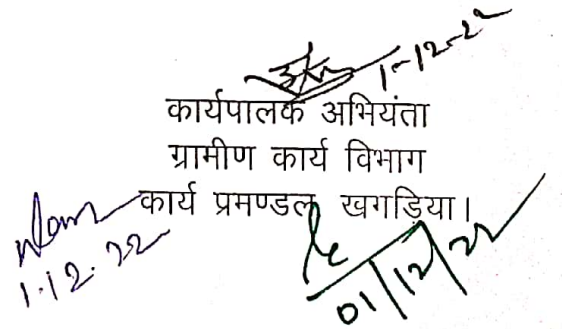 1-12-22
कार्यपालक अभियंता
ग्रामीण कार्य विभाग
कार्य प्रमण्डल, खगड़िया।
1.12.22
01/12/22